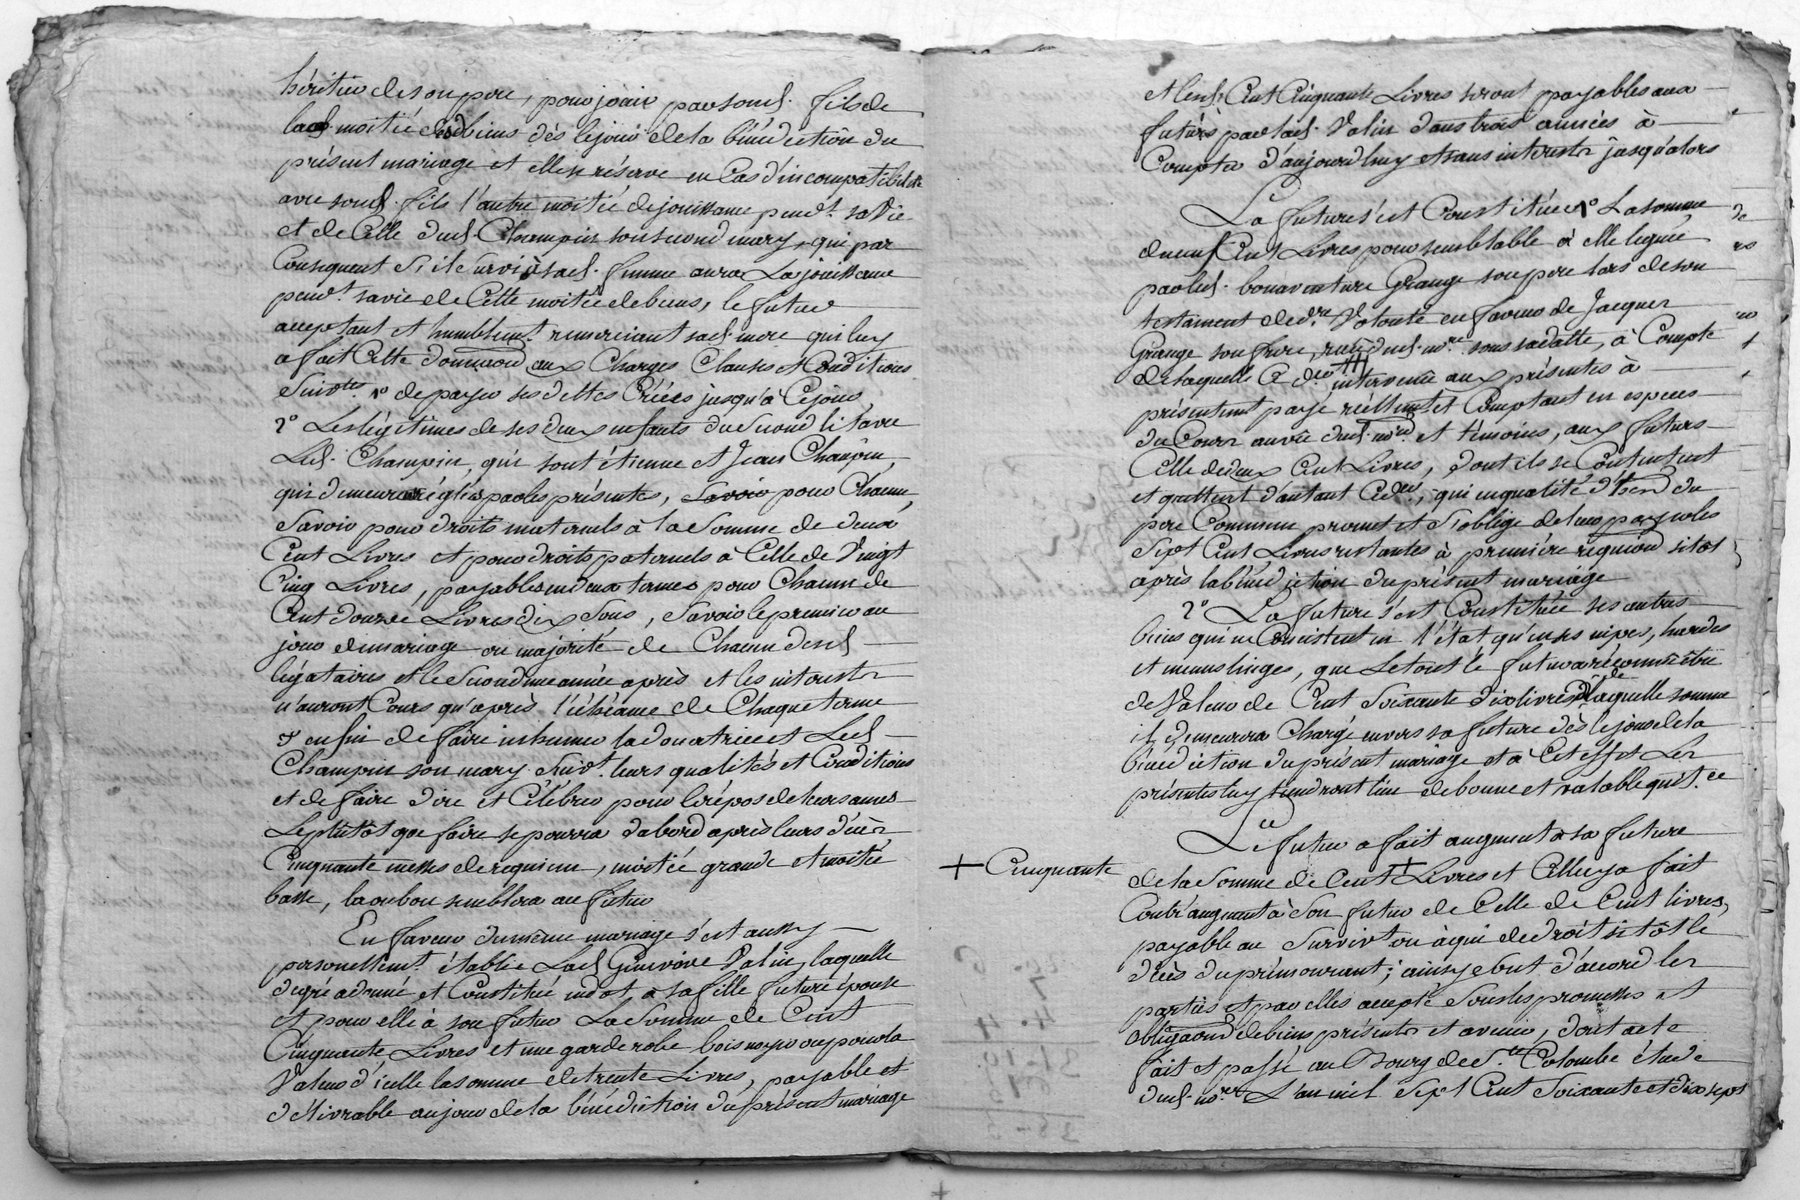 héritier de son pere, pour jouir par sond. fils de
lad moitié desd biens dès le jour de la bénédiction du
présent mariage et elle se réserve en Cas d'incompatibilité
avec sond. fils l'autre moitié de jouissance pendt. sa vie
et de Celle dud. Champin son second mary, qui par
Consequent s'il survit à sad. femme aura La jouissance
pendt. sa vie de Cette moitié de biens, le futur
acceptant et humblemt. remerciant sad. mere qui luy
a fait Cette donnaon aux Charges Clauses et Conditions
Suivtes. 1o de payer ses dettes Créées jusqu'à Ce jour
2o Les légitimes de ses deux enfants du second lit avec
Led. Champin, qui sont étienne et Jean Champin,
qui demeurent réglés par les présentes, savoir pour Chacun,
Savoir pour droits maternels à la Somme de deux
Cent Livres et pour droits paternels à Celle de Vingt
Cinq Livres, payables en deux termes pour Chacun de
Cent douze Livres dix Sous, Savoir le premier au
jour de mariage ou majorité de Chacun desd
légataires et le second une année après et les interests
n'auront Cours qu'après l'échéance de Chaque terme
& enfin de faire inhumer la donatrice et Led.
Champin son mary Suivt. leurs qualités et Conditions
et de faire dire et Célébrer pour le répos de leurs ames
Le plutôt que faire se pourra d'abord après leurs décès
Cinquante messes de requiem, moitié grande et moitié
basse, la ou bon semblera au futur
En faveur du même mariage s'est aussy
personellemt. établie Lad Geneviève Valin, laquelle
de gré a donné et Constitué en dot à sa fille future épouse
et pour elle à son futur La Somme de Cent
Cinquante Livres et une garde robe bois noyer ou pour la
Valeur d'icelle la somme de trente Livres, payable et
délivrable au jour de la bénédiction du présent mariage
et lesd. Cent Cinquante Livres seront payables aux
futurs par lad. Valin dans trois années à
Compter d'aujourd'huy et sans interest jusqu'alors
La future s'est Constituée 1o La somme
de neuf Cent Livres pour semblable à elle leguée
par led. bonaventure Grange son pere lors de son
testament de dre. Volonté en faveur de Jacques
Grange son frere, reçu dud. nore. sous sa datte, à Compte
de laquelle Ce dier intervenu aux présentes à
présentemt payé réellemt et Comptant en especes
du Cours au vû dud. nore. et témoins, aux futurs
Celle de deux Cent Livres, dont ils se Contentent
et quittent d'autant Ce der, qui en qualité d'herer du
pere Commun promet et s'oblige de leur payer les
Sept Cent Livres restantes à première réquison sitôt
après la bénédiction du présent mariage
2o La future s'est Constituée ses autres
biens qui ne Consistent en l'état qu'en ses nipes, hardes
et menus linges, que Le tout le futur a réconnu être
de Valeur de Cent Soixante dix livres de laquelle somme
il demeurera Chargé envers sa future dès le jour de la
bénédiction du présent mariage et à Cet effet Les
présentes luy tiendront lieu de bonne et valable quitce
Le futur a fait augment à sa future
+ Cinquante
de la Somme de Cent + Livres et Elle luy a fait
Contr'augment à Son futur de Celle de Cent livres,
payable au Survivt ou à qui de droit sitôt le
décès du prémourant; ainsy sont d'accord les
parties et par elles accepté sous les promesses et
obligaons de biens présents et avenir, dont acte
fait et passé au Bourg de Ste Colombe étude
dud. nore. L'an mil Sept Cent Soixante et dix sept